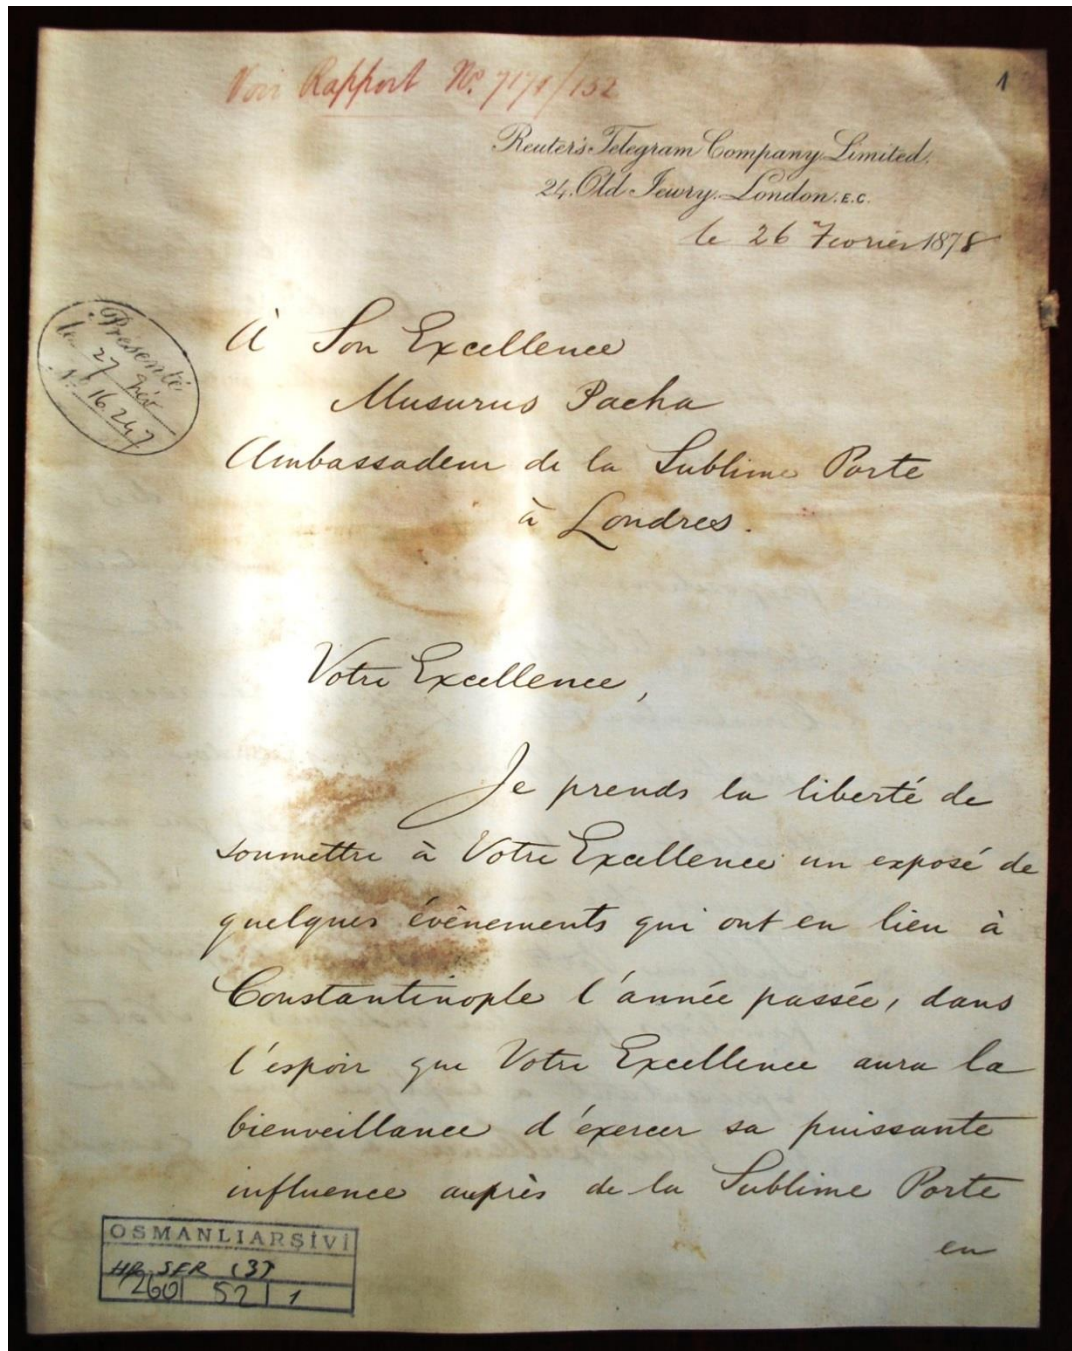 Voir Rapport No. 7171/152
1
Reuter's Telegram Company Limited.
24, Old Jewry, London, E.C.
le 26 Fevrier 1878
Présenté
le 27 Fév
No. 16.247
À Son Excellence
Musurus Pacha
Ambassadeur de la Sublime Porte
à Londres.
Votre Excellence,
Je prends la liberté de
soumettre à Votre Excellence un exposé de
quelques évènements qui ont eu lieu à
Constantinople l'année passée, dans
l'espoir que Votre Excellence aura la
bienveillance d'éxercer sa puissante
influence auprès de la Sublime Porte
en
OSMANLI ARŞİVİ
HR. SFR (3)
260 52 1